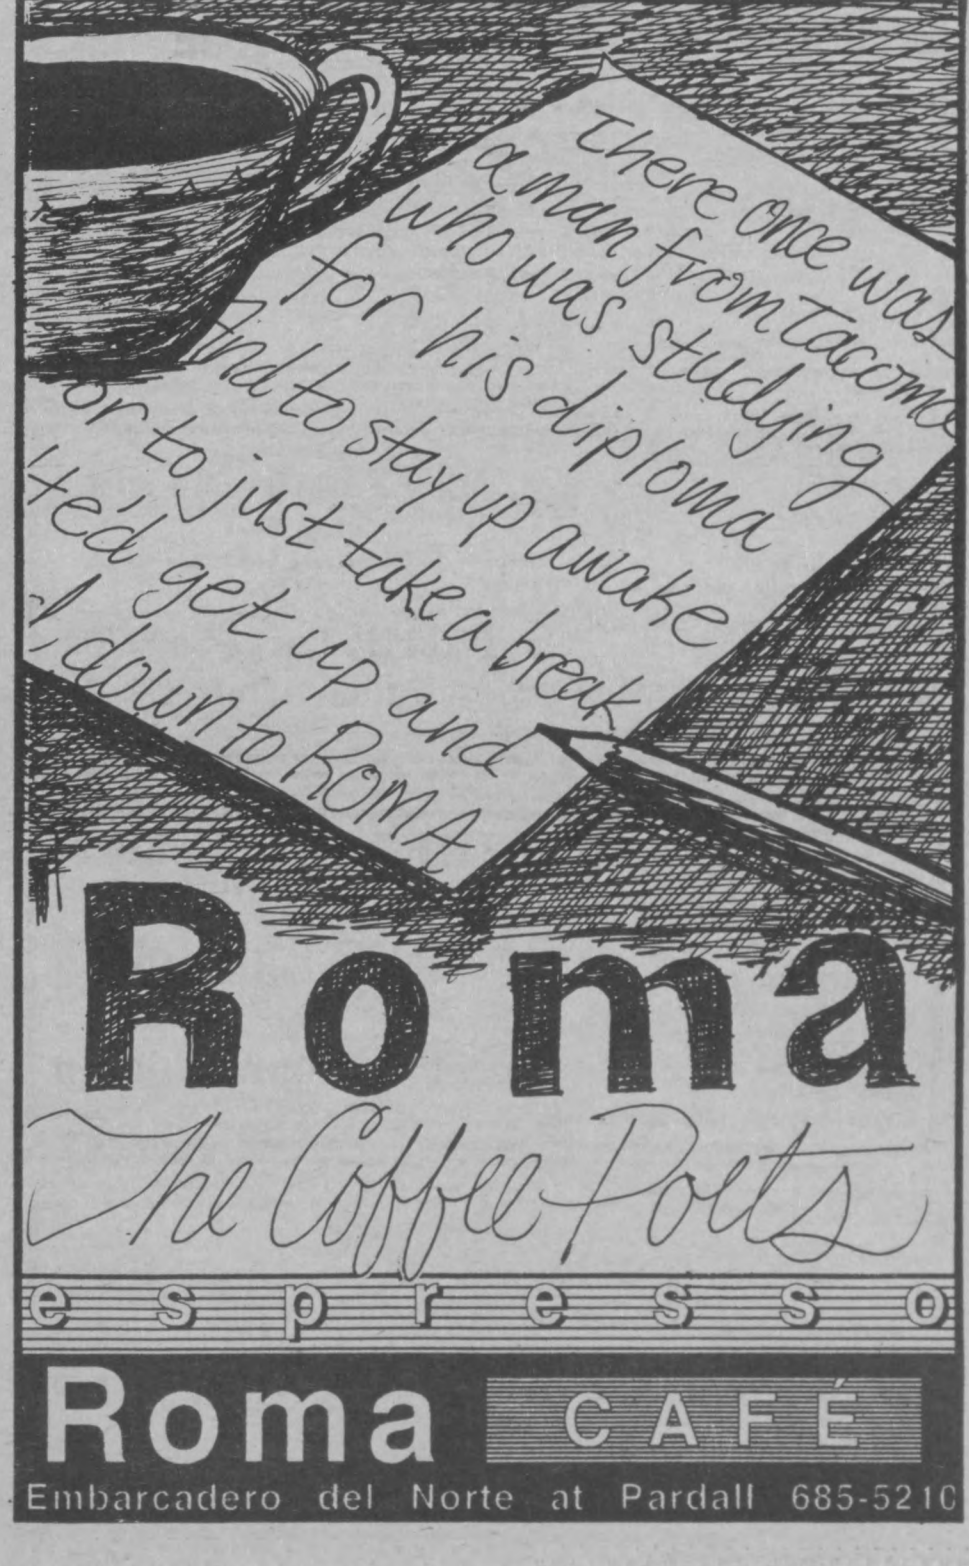 There once was
a man from Tacoma
who was studying
for his diploma
And to stay up awake
or to just take a break
He'd get up and
down to ROMA
Roma
The Coffee Poets
espresso
Roma CAFÉ
Embarcadero del Norte at Pardall 685-5210